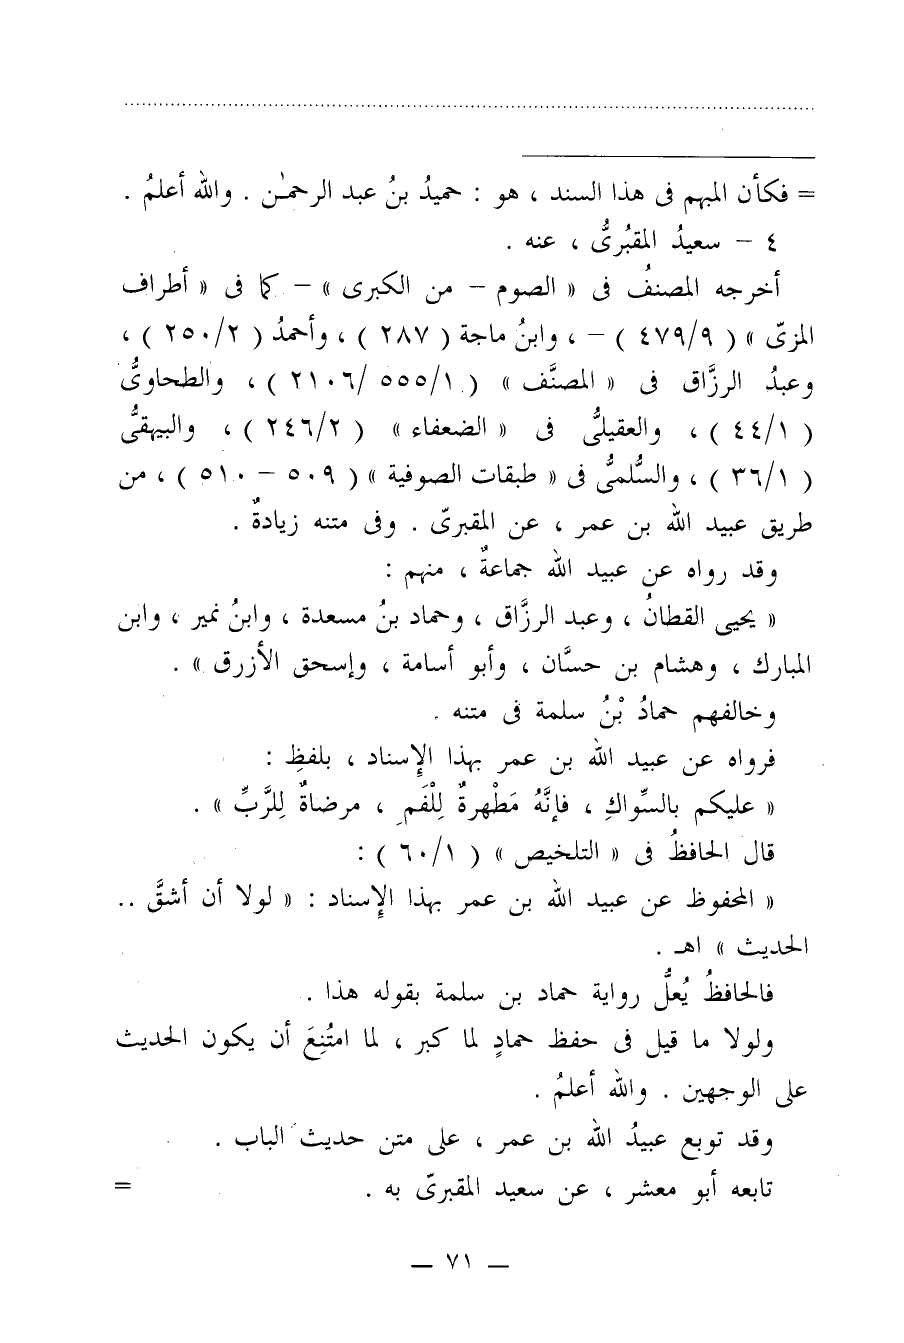 = فكأن المبهم فى هذا السند ، هو : حميدُ بنُ عبد الرحمـٰن . والله أعلمُ .
٤ – سعيدُ المقبُرىُّ ، عنه .
أخرجه المصنفُ فى « الصوم – من الكبرى » – كما فى « أطراف
المزىّ » ( ٤٧٩/٩ ) – ، وابنُ ماجة ( ٢٨٧ ) ، وأحمدُ ( ٢٥٠/٢ ) ،
وعبدُ الرزَّاق فى « المصنَّف » ( ٢١٠٦/ ٥٥٥/١ ) ، والطحاوىُّ
( ٤٤/١ ) ، والعقيلىُّ فى « الضعفاء » ( ٢٤٦/٢ ) ، والبيهقىُّ
( ٣٦/١ ) ، والسُّلمىُّ فى « طبقات الصوفية » ( ٥٠٩ – ٥١٠ ) ، من
طريق عبيد الله بن عمر ، عن المقبرىّ . وفى متنه زيادةٌ .
وقد رواه عن عبيد الله جماعةٌ ، منهم :
« يحيى القطانُ ، وعبد الرزَّاق ، وحماد بنُ مسعدة ، وابنُ نمير ، وابن
المبارك ، وهشام بن حسَّان ، وأبو أسامة ، وإسحق الأزرق » .
وخالفهم حمادُ بْنُ سلمة فى متنه .
فرواه عن عبيد الله بن عمر بهذا الإسناد ، بلفظِ :
« عليكم بالسِّواكِ ، فإنَّهُ مَطْهرةٌ لِلْفَمِ ، مرضاةٌ لِلرَّبِّ » .
قال الحافظُ فى « التلخيص » ( ٦٠/١ ) :
« المحفوظ عن عبيد الله بن عمر بهذا الإسناد : « لولا أن أشقَّ ..
الحديث » اهـ .
فالحافظُ يُعلُّ رواية حماد بن سلمة بقوله هذا .
ولولا ما قيل فى حفظ حمادٍ لما كبر ، لما امتُنِعَ أن يكون الحديث
على الوجهين . والله أعلمُ .
وقد توبع عبيدُ الله بن عمر ، على متن حديث الباب .
تابعه أبو معشر ، عن سعيد المقبرىّ به . =
— ٧١ —